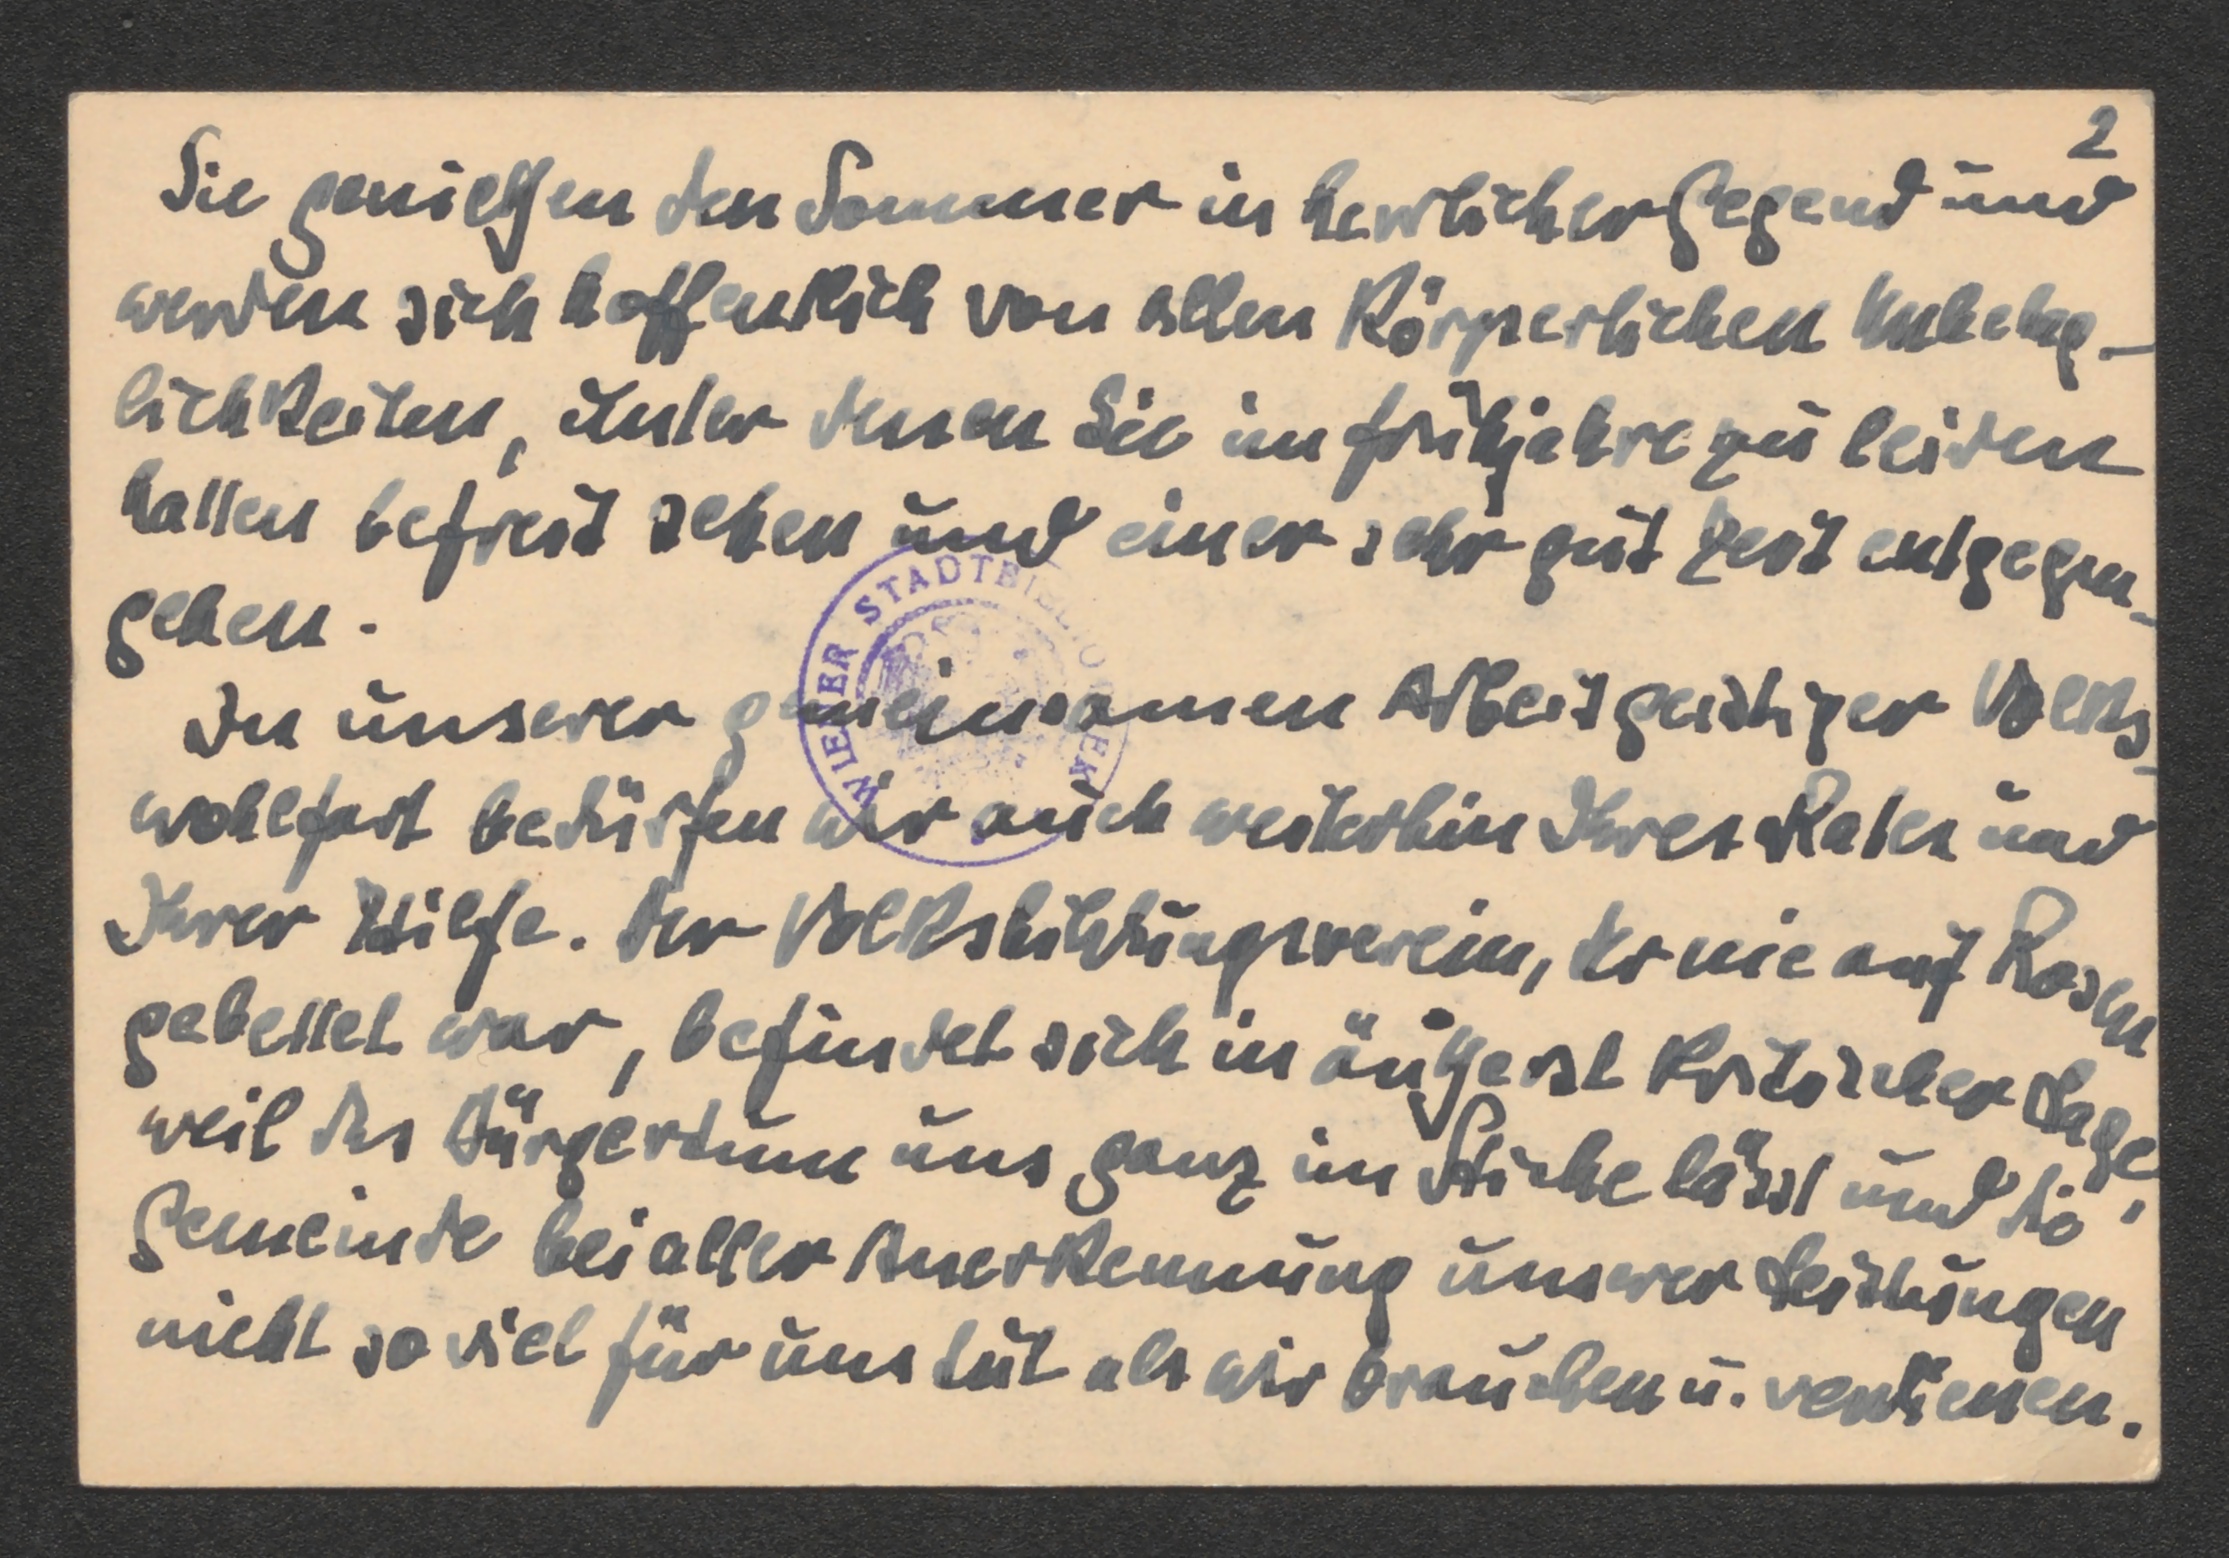 2
Sie genießen den Sommer in herrlicher Gegend und
werden sich hoffentlich von allen körperlichen Unbehag-
lichkeiten, unter denen Sie im Frühjahre zu leiden
hatten befreit sehen und einer sehr gut Zeit entgegen-
gehen.
In unserer gemeinsamen Arbeit geistiger Volks-
wohlfart bedürfen wir auch weiterhin Ihres Rates und
Ihrer Hilfe. Der Volksbildungsverein, der nie auf Rosen
gebettet war, befindet sich in äußerst kritischer Lage,
weil das Bürgertum uns ganz im Stiche lässt und die
Gemeinde bei aller Anerkennung unserer Leistungen
nicht so viel für uns tut als wir brauchen u. verdienen.
WIENER STADTBIBLIOTHEK